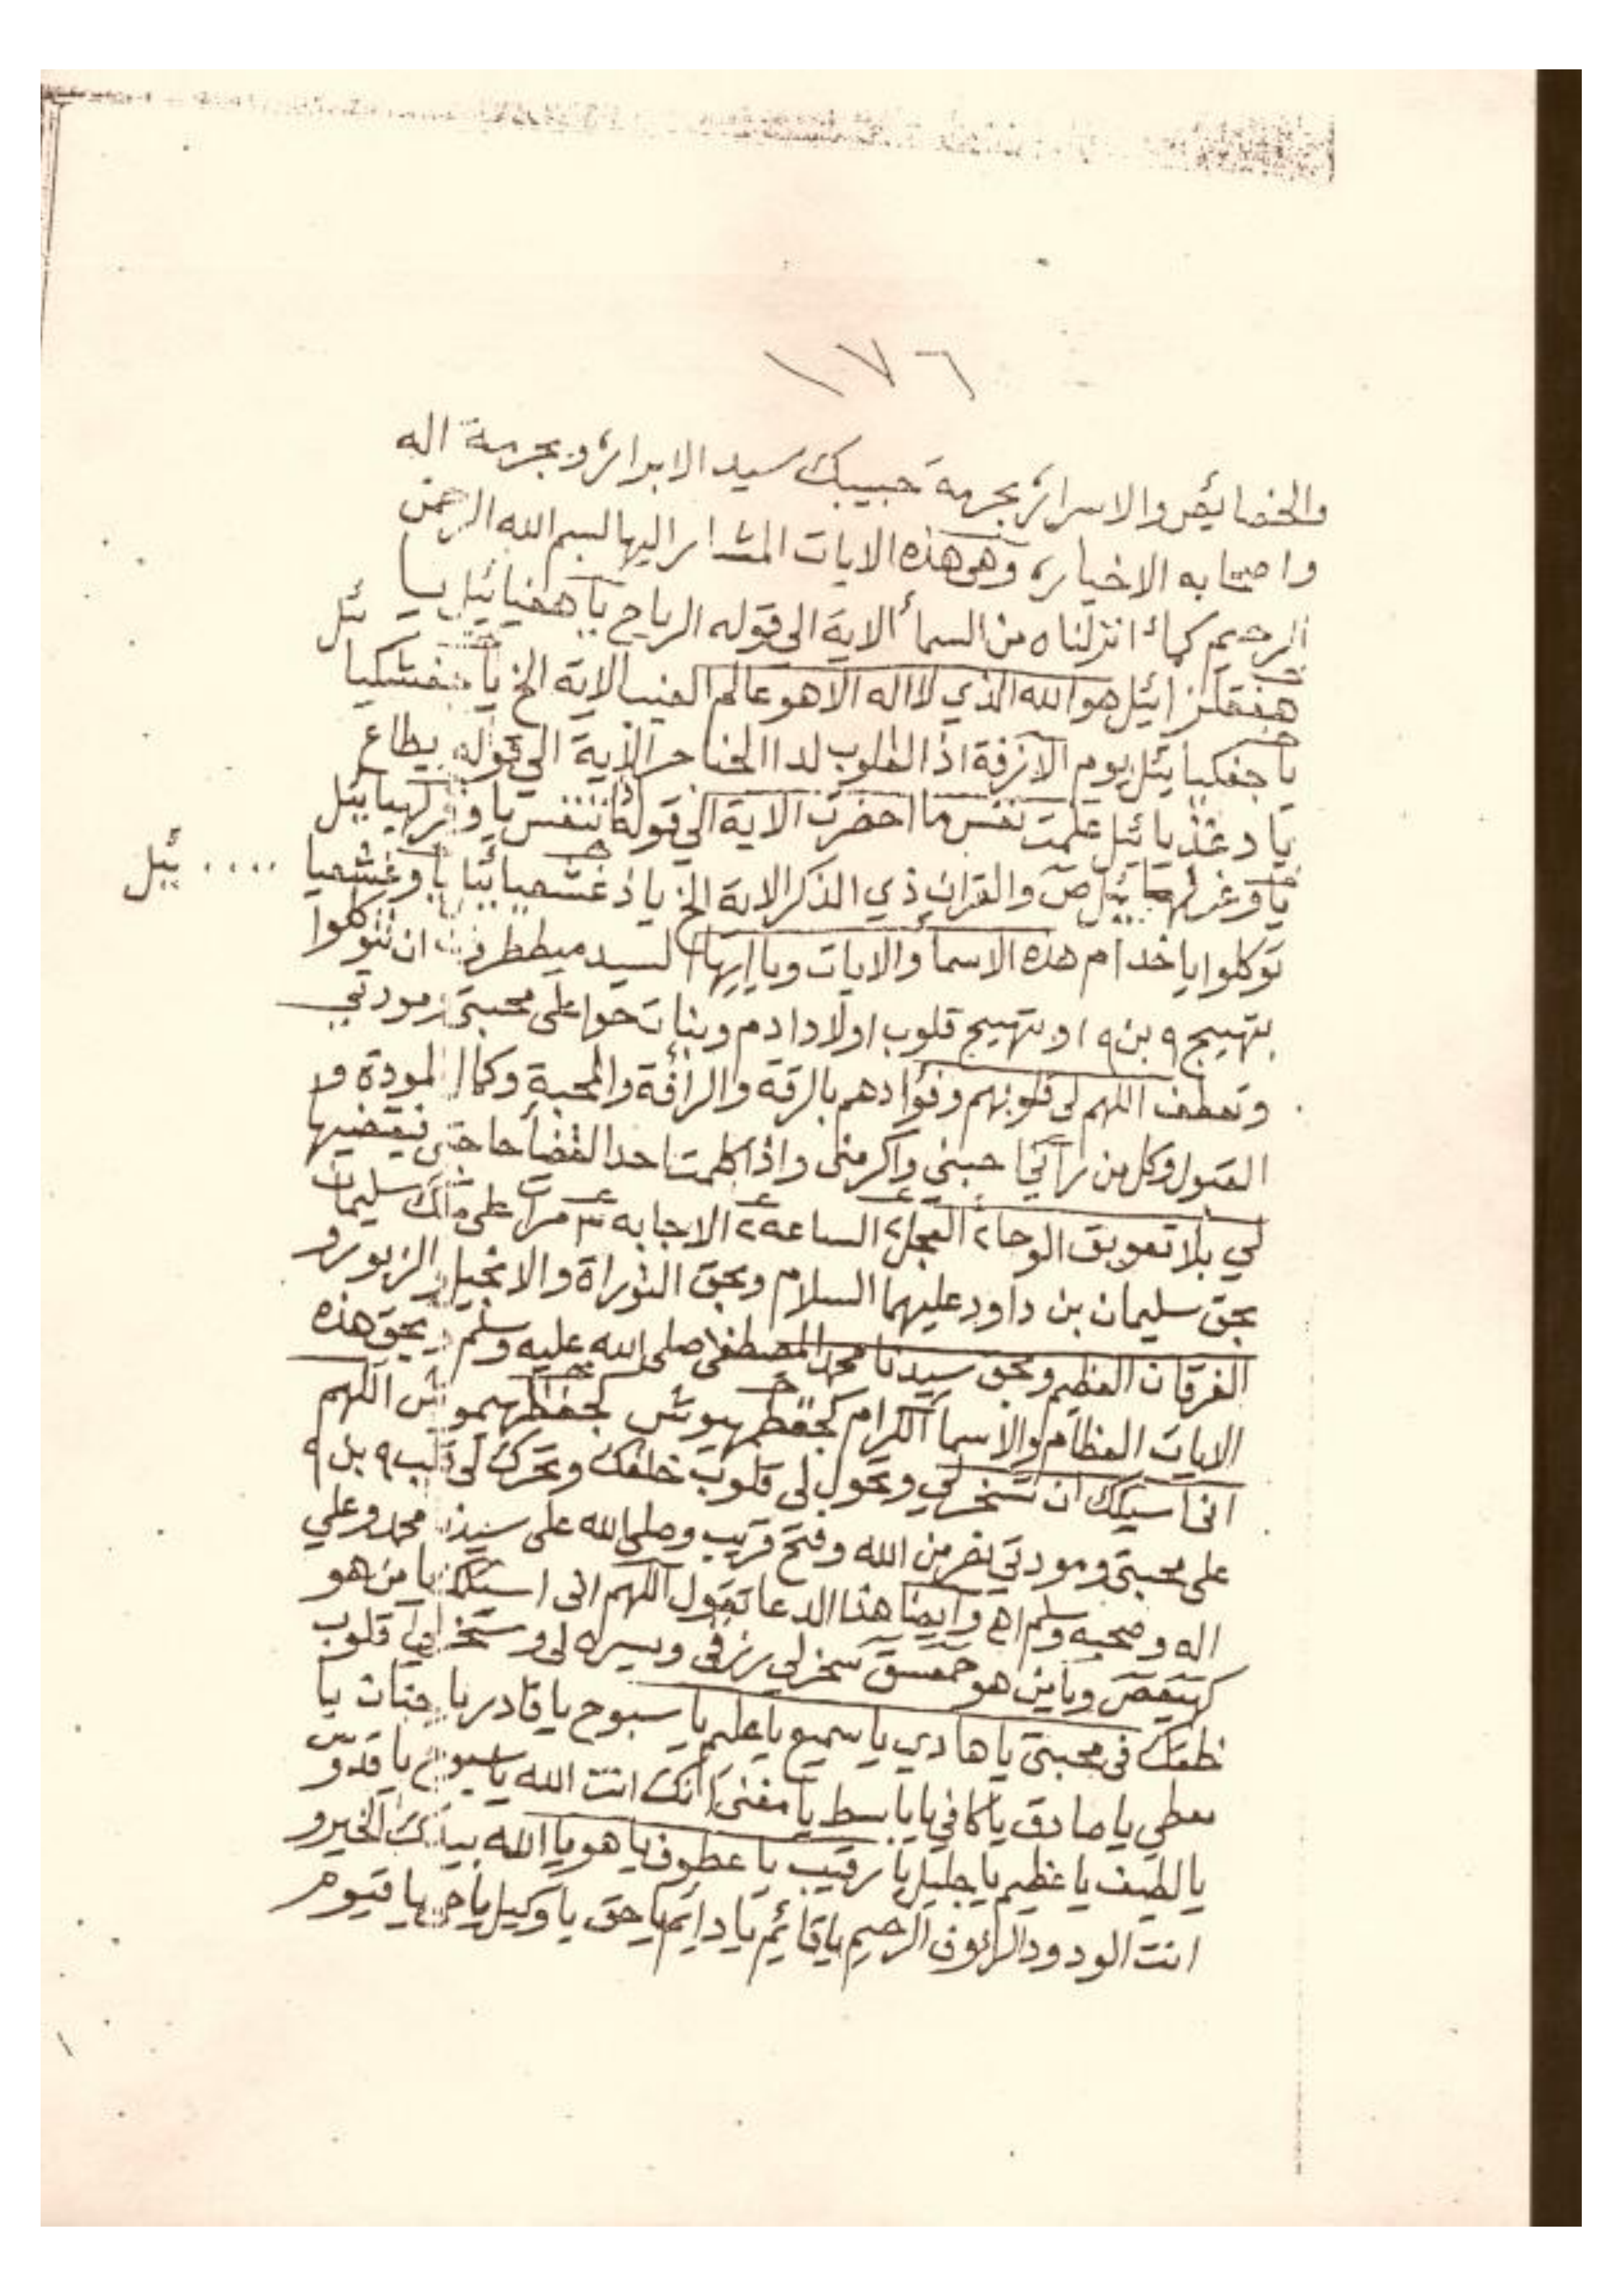 ١٧٦
والخصائص والاسرار، بحرمة حبيبك سيد الابرار، وبحرمة اله
واصحابه الاخيار، وهى هذه الايات المشار اليها بسم الله الرحمن
الرحيم كمائ انزلناه من السمأ الاية الى قوله الرياح يا هفيائيل يا
ئيل هو الله الذي لا اله الا هو عالم الغيب الاية الخ يا
يا جفكيائيل يوم الازفة اذ القلوب لدا الحناجر الاية الى قوله يطاع
يا دغذيائيل علمت نفس ما احضرت الاية الى قوله تنفس يا
ص والقران ذي الذكر الاية الخ يا ئيل
توكلوا يا خدام هذه الاسمأ والايات ويا ايها السيد ميططرون ان تتوكلوا
بتهييج ٩ بن ٩ او بتهييج قلوب اولاد ادم وبنات حوا على محبتى ومودتي
وتعطف اللهم لى قلوبهم وفؤادهم بالرقة والرافة والمحبة وكمال المودة و
القبول وكل من رآني احبني واكرمنى واذا كلمت احد القضأ حاحتى فيقضيها
لي بلا تعويق الوحا ٢ العجل ٢ الساعه ٢ الاجابه ٣ مرات على ملك سليمان
بحق سليمان بن داود عليهما السلام وبحق التوراة والانجيل والزبور و
الفرقان العظيم وبحق سيدنا محمد المصطفى صلى الله عليه وسلم وبحق هذه
الايات العظام والاسمأ الكرام اللهم
انى اسيلك ان تسخر لي وتحول لى قلوب خلقك وتحرك لى قلب ٩ بن ٩
على محبتى ومودتي نصر من الله وفتح قريب وصلى الله على سيدنا محمد وعلي
اله وصحبه وسلم اهـ وايضا هذا الدعا تقول اللهم انى اسئلك يا من هو
كهيعص ويا من هو حمعسق سخر لى رزقى ويسره لى وسخر لى قلوب
خلقك فى محبتى يا هادي يا سميع يا عليم يا سبوح يا قادر يا حنان يا
معطي يا صادق يا كافي يا باسط يا مغنى انك انت الله يا سبوح يا قدوس
يا لطيف يا عظيم يا جليل يا رقيب يا عطوف يا هو يا الله بيدك الخير و
انت الودود الرئوف الرحيم يا قائيم يا دايم يا حق يا وكيل يا حي يا قيوم